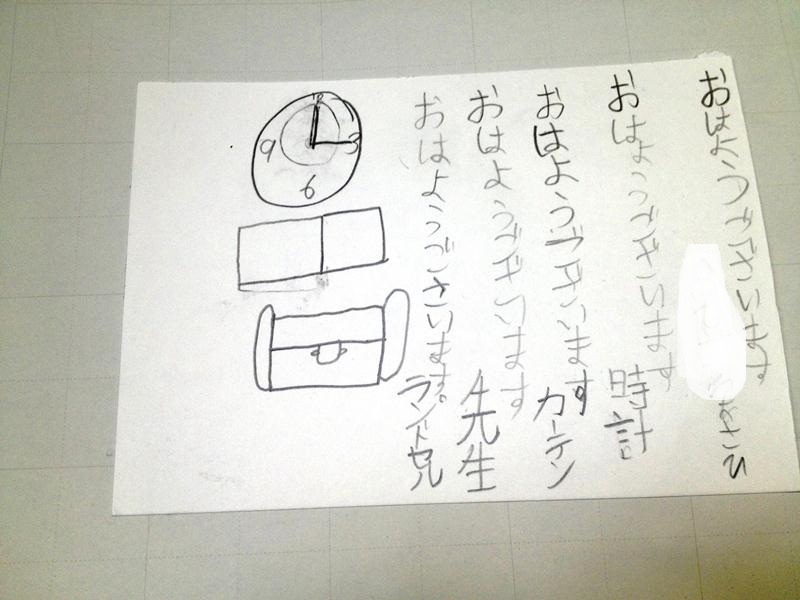 おはようございます。
おはようございます 時計
おはようございます カーテン
おはようございます 先生
おはようございます。 ランドセル
12
9 3
6